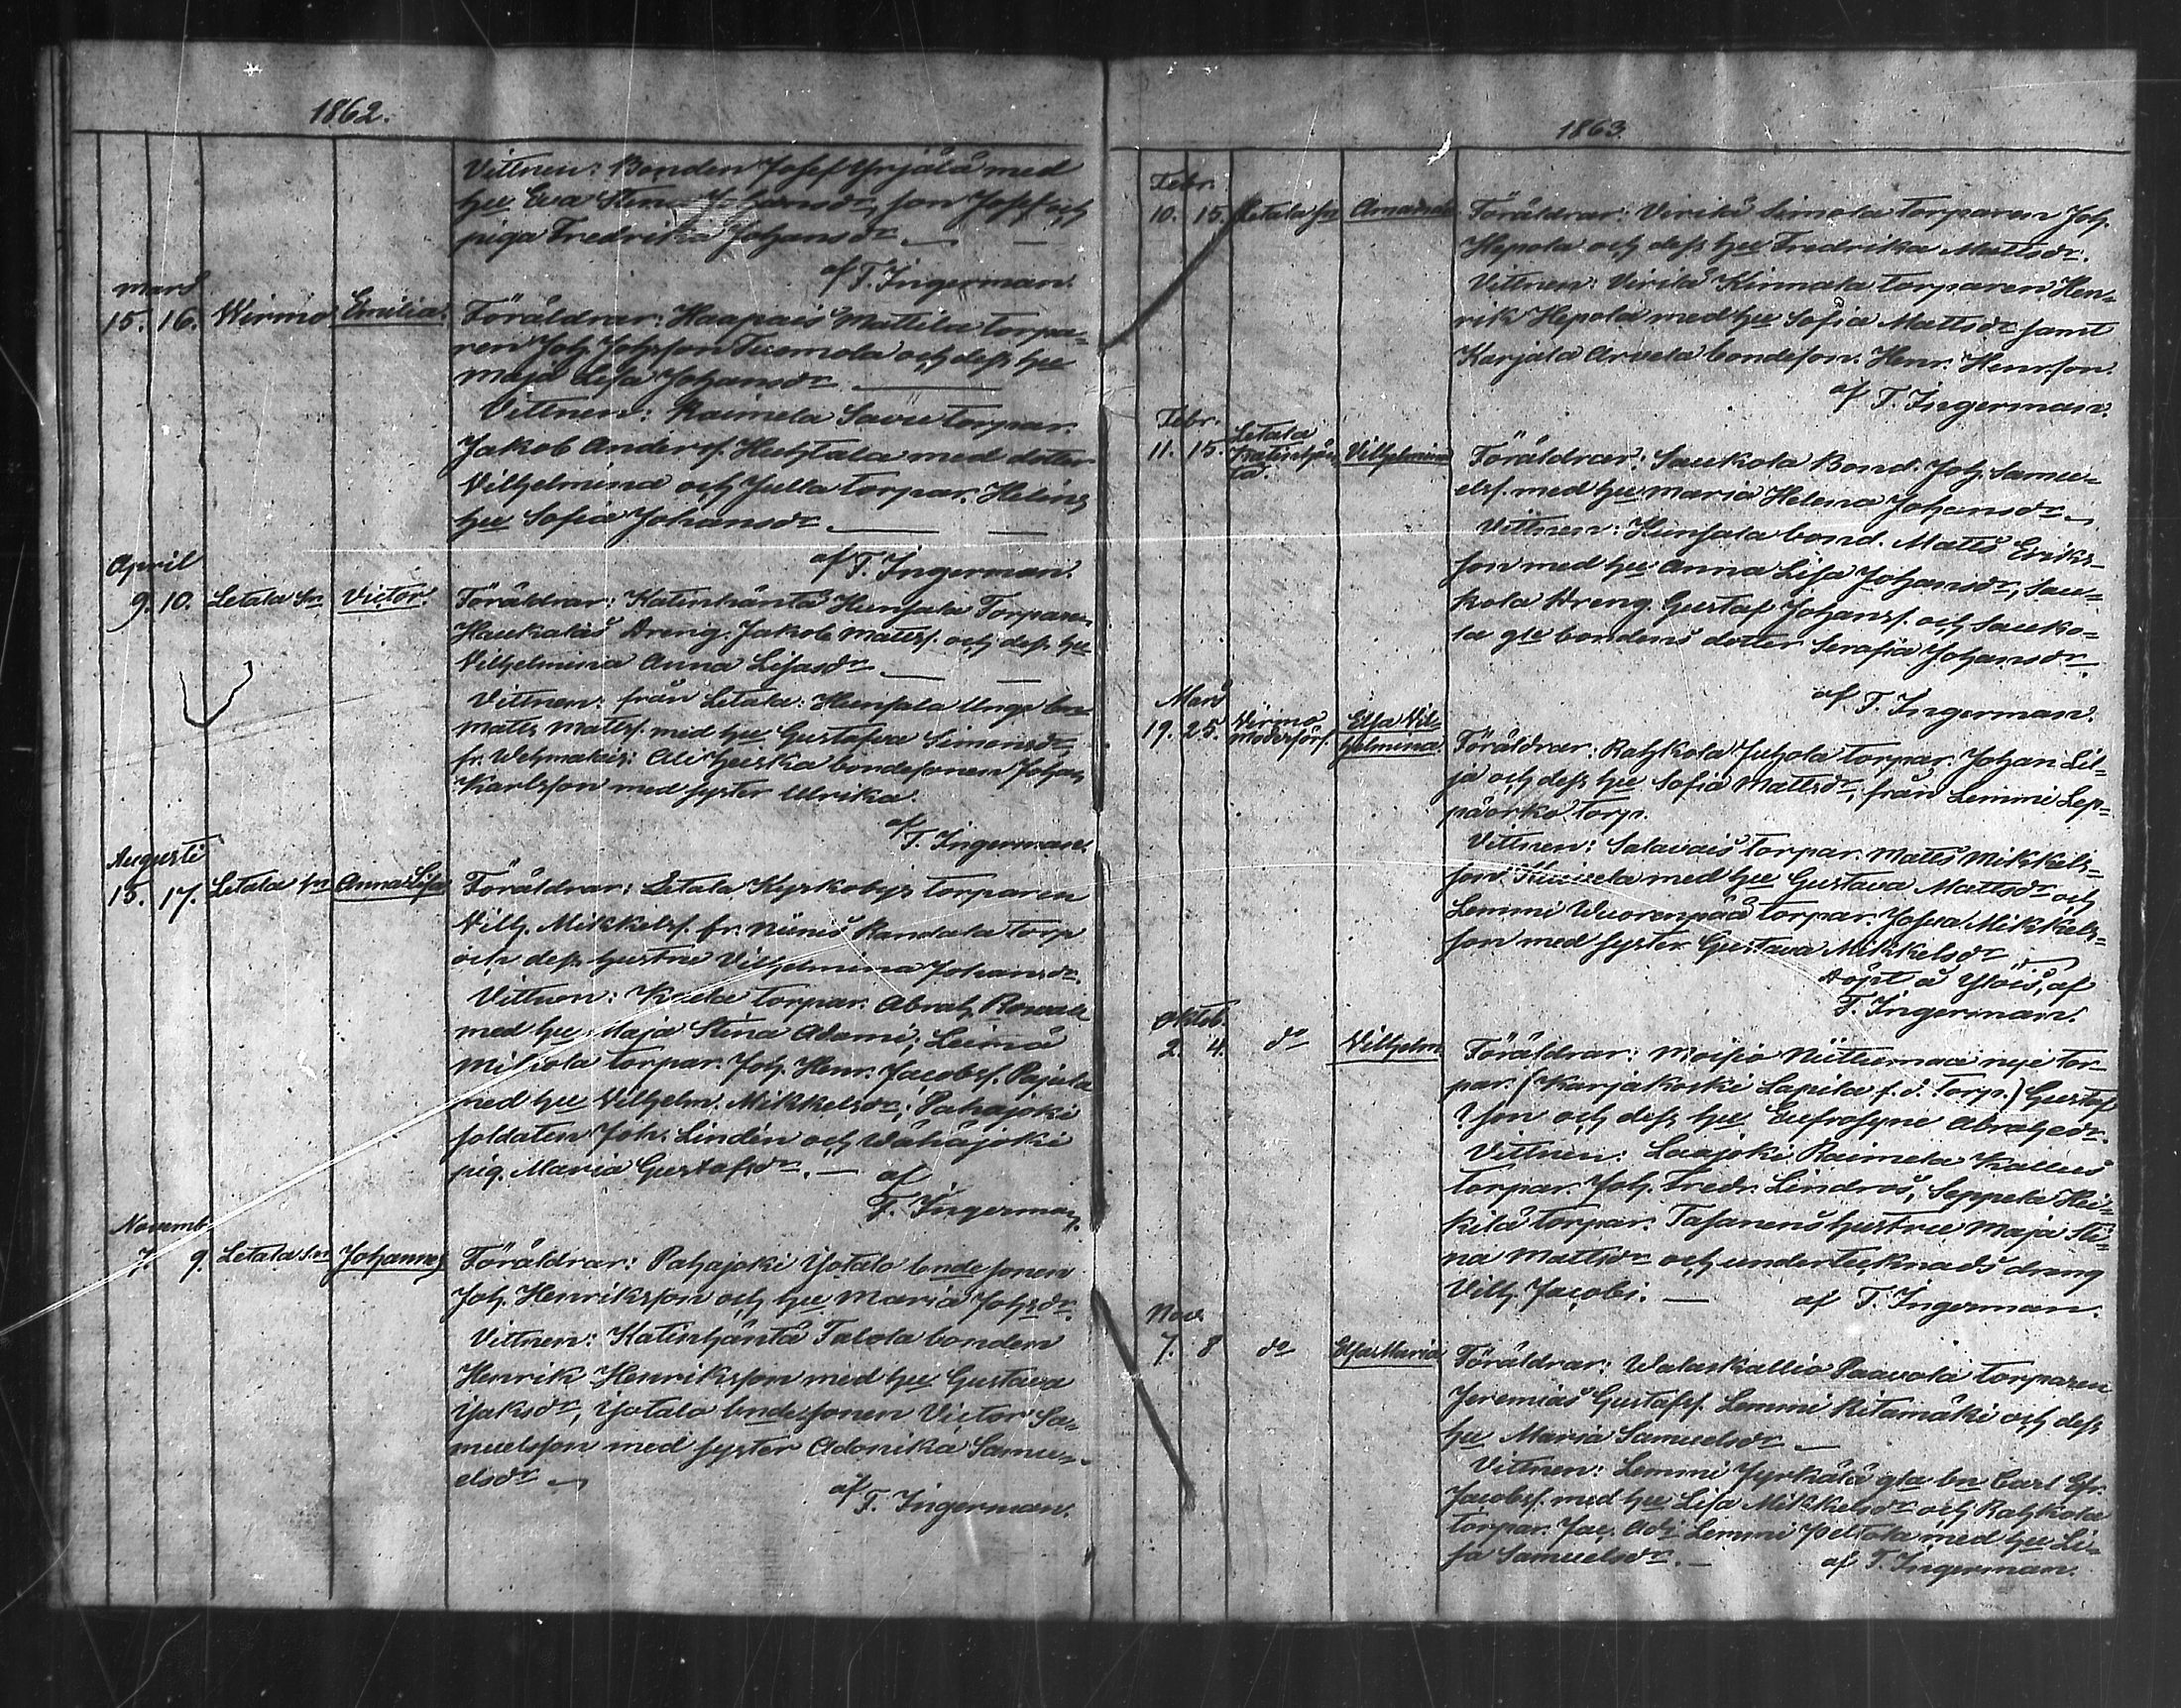 1862.
Vittnen: Bonden Josef Yrjälä med
hu Eva Stina Johansdr, son Josef och
piga Fredrika Johansdr
af T. Ingerman.
Mars
15. 16. Wirmo Emilia. Föräldrar: Haapais Mattila torpa=
ren Joh. Johsson Tuomola och dess hu
Maja Lisa Johansdr
Vittnen: Raimela Savu torpar.
Jakob Anders. Huhtala med dotter
Vilhelmina och Julla torpar. Helins
hu Sofia Johansdr
af T. Ingerman.
April
9. 10. Letala sn Victor. Föräldrar: Katinhänta Hunsala Torparen
Haukalas dreng. Jakob Matts. och dess hu
Vilhelmina Anna Lisasdr
Vittnen: från Letala: Hunsala Unge bon
Matts Matts. med hu Gustafva Simonsdr,
fr. Wehmalais: Ali heiska bondesonen Johan
Karlsson med syster Ulrika.
af
T. Ingerman.
Augusti
15. 17. Letala sn Anna Lisa Föräldrar: Letala Kyrkobys torparen
Vilh. Mikkels. fr. Niinis Randala torp
och dess hustru Vilhelmina Johansdr.
Vittnen: torpar. Abrah.
med hu Maja Stina Adami; Leimä
Mikola torpar. Joh. Henr. Jacobs. Pajula
med hu Vilhelm. Mikkelsdr; Pahajoki
soldaten Joh. Lindén och Wähäjoki
pig. Maria Gustafsdr.
af
T. Ingerman.
Novemb.
7. 9. Letala sn Johannes Föräldrar: Pahajoki Yotalo bondesonen
Joh. Henriksson och hu Maria Johsdr.
Vittnen: Katinhäntä Talola bonden
Henrik Henriksson med hu Gustava
Isaksdr, Yotalo bondesonen Victor Sa=
muelsson med syster Adonika Samu=
elsdr
af
T. Ingerman.
1863.
Febr.
10. 15. Letala sn Amanda Föräldrar: Virilä Simola torparen Joh.
Hepola och dess hu Fredrika Mattsdr.
Vittnen: Virilä Kinnala torparen Hen=
rik Hepola med hu Sofia Mattsdr samt
Karjala Arvela bondeson. Henr. Henrsson.
af T. Ingerman.
Febr.
11. 15. Letala Vilhelmina Föräldrar: Saukola Bond. Joh. Samu=
els. med hu Maria Helena Johansdr
Vittnen: Hunsala bond. Matts Eriks=
son med hu Anna Lisa Johansdr, Sau=
kola dreng Gustaf Johans. och Sauko=
la gle bondens dotter Serafia Johansdr
af T. Ingerman.
Mars
19. 25. Virmo Moderförs. Elsa Vil=
helmina Föräldrar: Rahkola Juhola torpar. Johan Lil=
ja och dess hu Sofia Mattsdr, från Lemmi Lep=
päorko torp.
Vittnen: Salavais torpar. Matts Mikkels=
son med hu Gustava Mattsdr och
Lemmi Wuorenpää torpar. Josua Mikkels=
son med syster Gustava Mikkelsdr
Döpt å Yläis, af
T. Ingerman.
Oktob.
2. 4. do Vilhelm Föräldrar: Moisio Niittumaa nye tor=
par. (Karjakoski Lapila f. d. torp.) Gustaf
? son och dess hu Eufrosyne Abrahdr.
Vittnen: Laajoki Raimela Kallus
torpar. Joh. Fredr. Lindros, Seppela Hei=
kilä torpar. Tasanens hustru Maja Sti=
na Mattsdr och undertecknads dreng
Vilh. Jacobi.
af T. Ingerman.
Nov.
7. 8 do Elsa Maria Föräldrar: Walaskallio Paavola torparen
Jeremias Gustafs. Lemmi Ritamäki och dess
hu Maria Samuelsdr
Vittnen: Lemmi Jyrkälä gla bn Carl Efr.
Jacobs. med hu Lisa Mikkelsdr och Rahkola
torpar. Jac. Adi Lemmi Peltola med hu Li=
sa Samuelsdr.
af T. Ingerman.